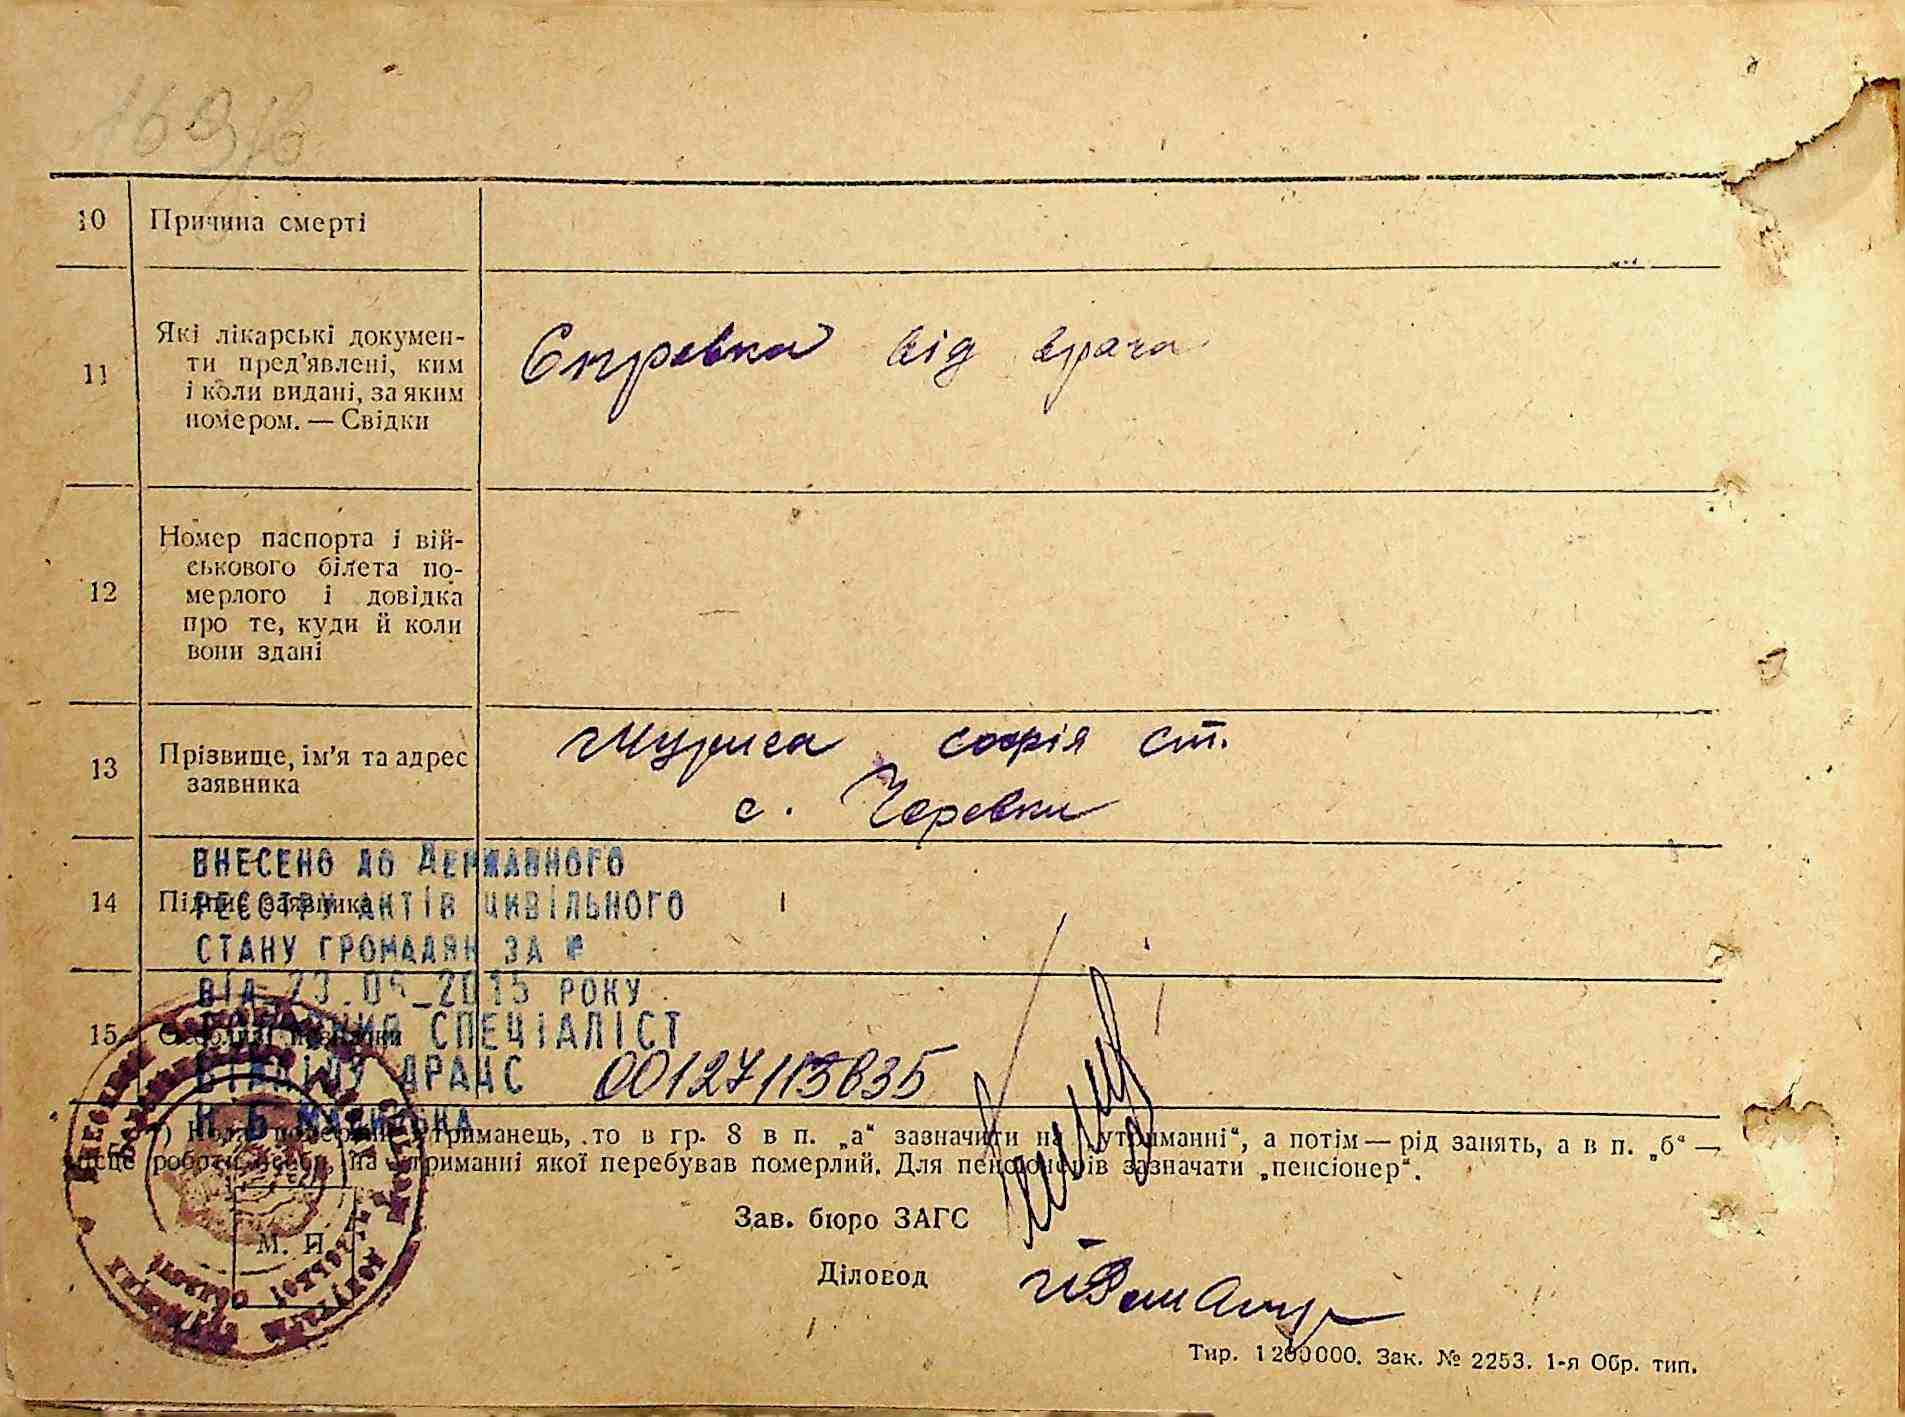 10 Причина смерті
11 Які лікарські докумен-
ти пред'явлені, ким
і коли видані, за яким
номером. — Свідки
Справка від врача
12 Номер паспорта і вій-
ськового білета по-
мерлого і довідка
про те, куди й коли
вони здані
13 Прізвище, ім'я та адрес
заявника
софія ст.
с. Черевки
ВНЕСЕНО ДО ДЕРЖАВНОГО
14 Підпис заявника
РЕЄСТРУ АКТІВ ЦИВІЛЬНОГО
СТАНУ ГРОМАДЯН ЗА №
ВІД 2015 РОКУ
15
СПЕЦІАЛІСТ
ВІДДІЛУ ДРАЦС 00127115835
утриманець, то в гр. 8 в п. „а“ зазначити на утриманні“, а потім — рід занять, а в п. „б“ —
місце роботи особи, на утриманні якої перебував померлий. Для пенсіонерів зазначати „пенсіонер“.
Зав. бюро ЗАГС
М. П.
Діловод
Тир. 1200000. Зак. № 2253. 1-я Обр. тип.